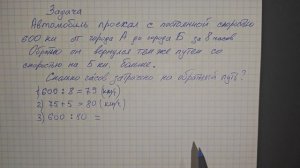 Задача
Автомобиль проехал с постоянной скоростью
600 км от города А до города Б за 8 часов
Обратно он вернулся тем же путем со
скоростью на 5 км. больше.
Сколько часов затрачено на обратный путь?
1) 600 : 8 = 75 (км/ч)
2) 75 + 5 = 80 (км/ч)
3) 600 : 80 =